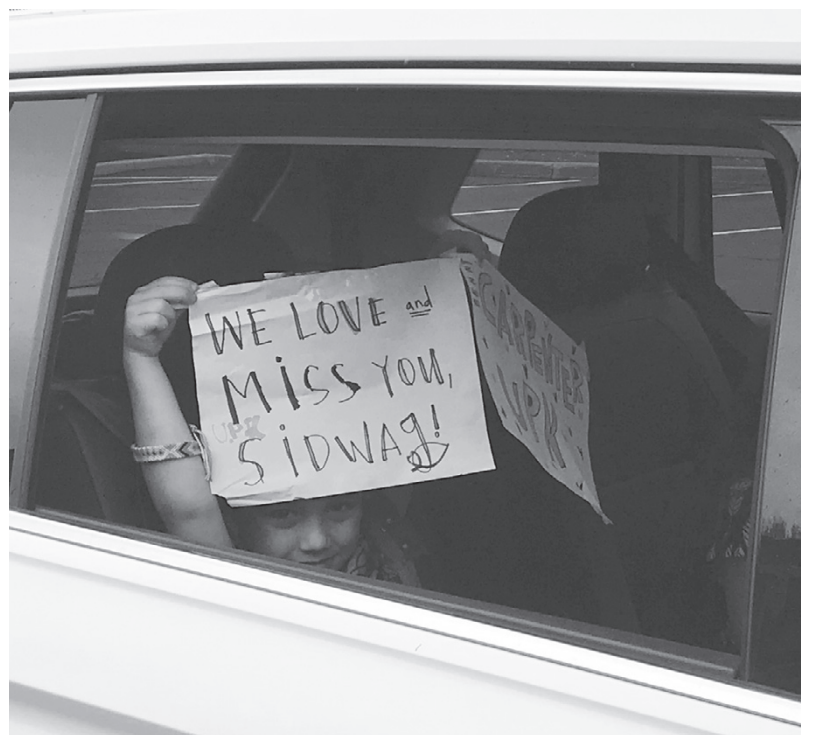 WE LOVE and
MISS YOU,
UPK
SIDWAY!
CARPENTER
UPK